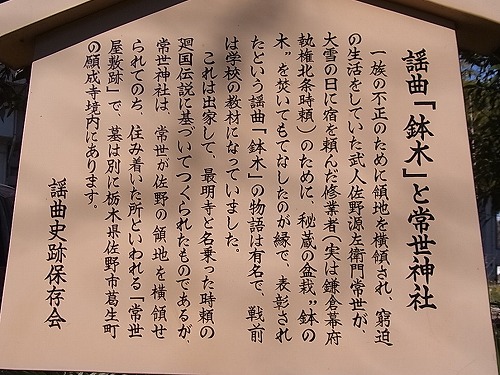 謡曲「鉢木」と常世神社
一族の不正のために領地を横領され、窮迫
の生活をしていた武人佐野源左衛門常世が、
大雪の日に宿を頼んだ修業者(実は鎌倉幕府
執権北条時頼)のために、秘蔵の盆栽〝鉢の
木〟を焚いてもてなしたのが縁で、表彰され
たという謡曲「鉢木」の物語は有名で、戦前
は学校の教材になっていました。
これは出家して、最明寺と名乗った時頼の
廻国伝説に基づいてつくられたものであるが、
常世神社は、常世が佐野の領地を横領せ
られてのち、住み着いた所といわれる「常世
屋敷跡」で、墓は別に栃木県佐野市葛生町
の願成寺境内にあります。
謡曲史跡保存会